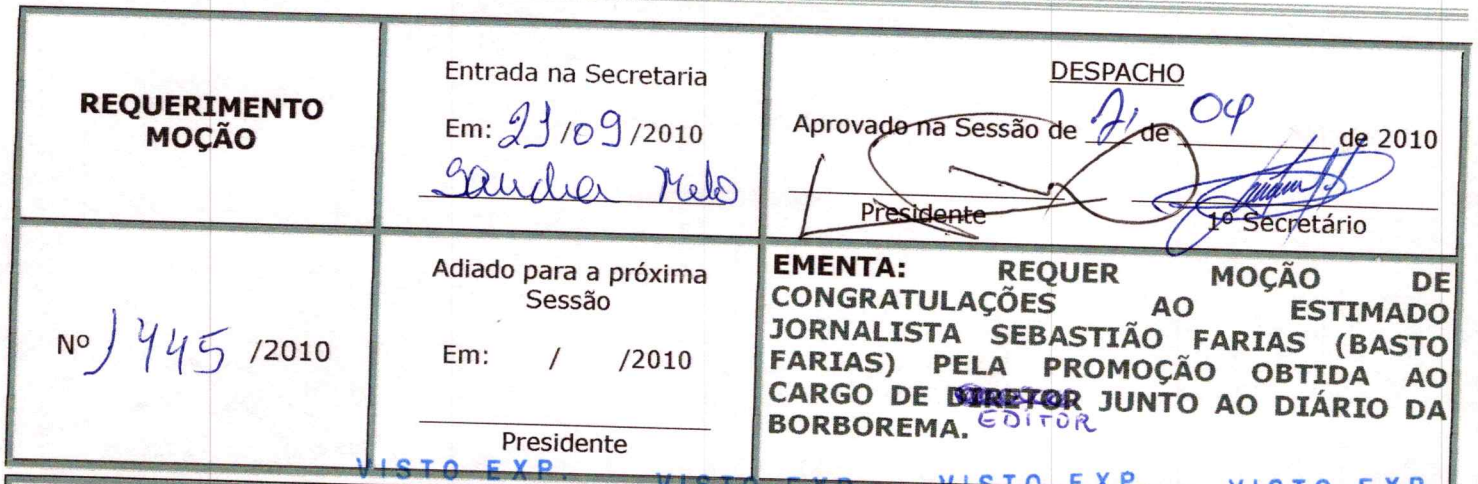 REQUERIMENTO
MOÇÃO
Entrada na Secretaria
Em: 21/09/2010
Sandra Melo
DESPACHO
Aprovado na Sessão de 21 de 09 de 2010
Presidente
1º Secretário
Nº 1445 /2010
Adiado para a próxima
Sessão
Em: / /2010
Presidente
EMENTA: REQUER MOÇÃO DE
CONGRATULAÇÕES AO ESTIMADO
JORNALISTA SEBASTIÃO FARIAS (BASTO
FARIAS) PELA PROMOÇÃO OBTIDA AO
CARGO DE DIRETOR JUNTO AO DIÁRIO DA
EDITOR
BORBOREMA.
VISTO EXP. VISTO EXP. VISTO EXP. VISTO EXP.